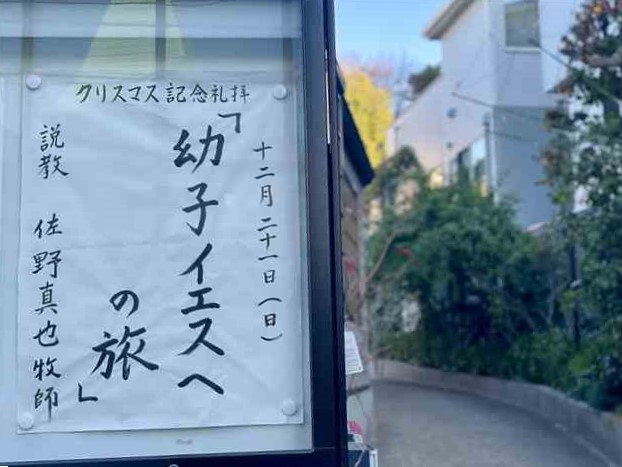 クリスマス記念礼拝
十二月二十一日(日)
「幼子イエスへ
の旅」
説教 佐野真也牧師